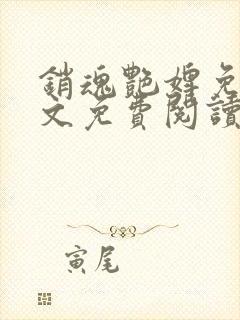 銷魂艷婢免
文免費閱讀
寅尾